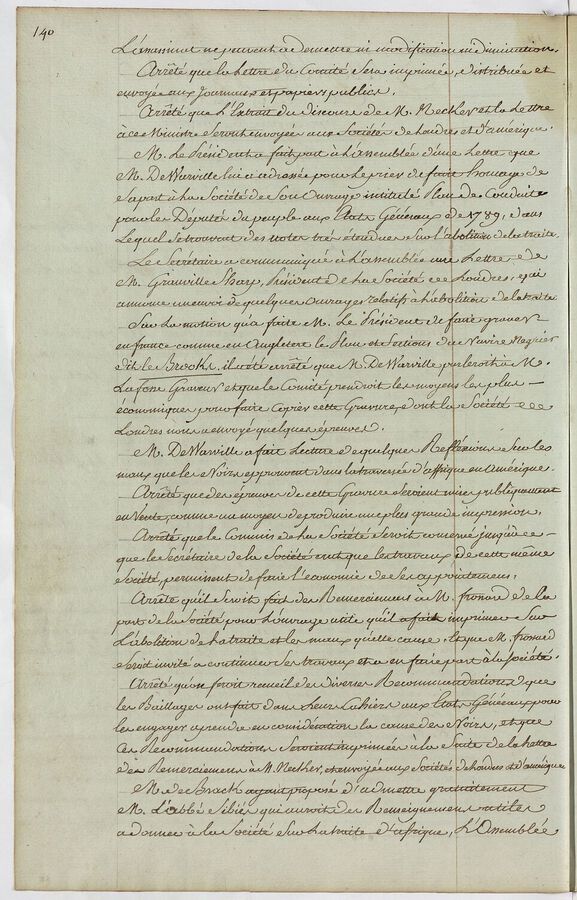 140
L'examinat ne peuvent admettre ni modification ni diminution.
Arrêté que la Lettre du Comité sera imprimée, distribuée et
envoyée aux Journaux et papiers publics.
Arrêté que l'Extrait du discours de M. Necker et la Lettre
à ce Ministre seront envoyés aux Sociétés de Londres et d'amérique.
M. Le Président a fait part à l'assemblée d'une Lettre que
M. De Warville lui a adressée pour le prier de faire hommage de
sa part à la Société de son Ouvrage intitulé Plan de Conduite
pour les Députés du peuple aux Etats Généraux de 1789, dans
lequel se trouvait des notes très étendues sur l'abolition de la traite.
Le Secrétaire a communiqué à l'assemblée une Lettre de
M. Granville Sharp, Président de la Société de Londres, qui
annonce un envoi de quelques Ouvrages relatifs à l'abolition de la traite.
Sur la motion qu'a faite M. Le Président de faire graver
en france comme en Angleterre le Plan et Sections du Navire Negrier
dit le Brooks, il a été arrêté que M. De Warville parleroit à M.
La fosse Graveur et que le Comité prendroit les moyens les plus
économiques pour faire Copier cette Gravure, dont la Société de
Londres nous a envoyé quelques épreuves.
M. De Warville a fait Lecture de quelques Réfléxions sur les
maux que les Noirs éprouvent dans la traversée d'affrique en Amérique.
Arrêté que des épreuves de cette Gravure seroient mises publiquement
en Vente, comme un moyen de produire une plus grande impression.
Arrêté que le Commis de la Société seroit conservé jusqu'à ce
que le Secrétaire de la Société crut que les travaux de cette même
Société, permissent de faire l'économie de ses appointemens.
Arrêté qu'il seroit fait des Remerciemens à M. frossard de la
part de la Société pour l'ouvrage utile qu'il a fait imprimer sur
l'abolition de la traite et les maux qu'elle cause. Et que M. frossard
seroit invité a continuer ses travaux et a en faire part à la société.
Arrêté qu'on feroit recueil des diverses Recommandations que
les Baillages ont fait dans leurs Cahiers aux Etats Généraux pour
les engager a prendre en considération la cause des Noirs, et que
ces Recommandations seroient imprimées à la Suite de la lettre
des Remerciemens à M. Necker, et envoyée aux Sociétés de Londres et d'amérique
M. de Brack ayant proposé d'admettre gratuitement
M. L'abbé Sibire qui auroit des Renseignemens utiles
a donner à la Société sur la traite d'afrique, L'Assemblée